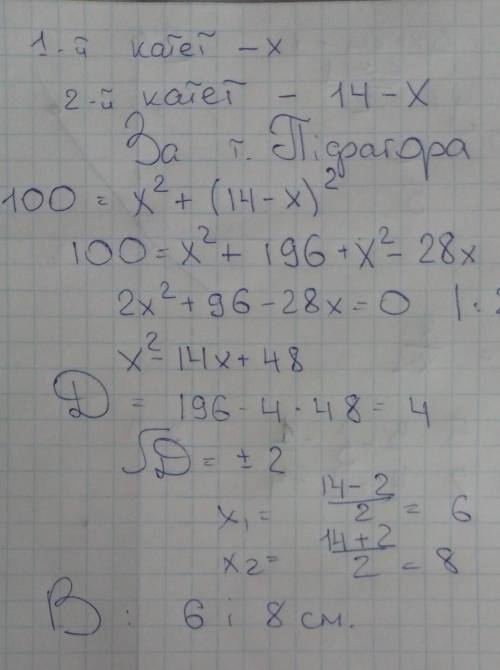 1-й катет – x
2-й катет – 14-x
За т. Піфагора
100 = x² + (14-x)²
100 = x² + 196 + x² - 28x
2x² + 96 - 28x = 0 | : 2
x² - 14x + 48
D = 196 - 4 · 48 = 4
√D = ± 2
x₁ = (14-2)/2 = 6
x₂ = (14+2)/2 = 8
В: 6 і 8 см.